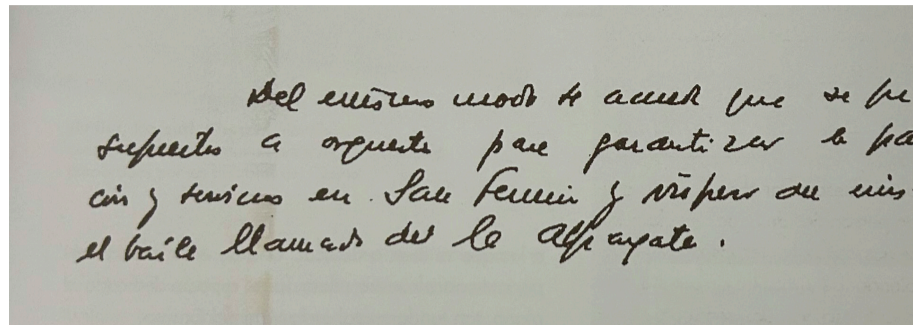 Del mismo modo se acuerda que se pre
supuesto a orquesta para garantizar la pa
ción y servicios en San Fermín y víspera de mis
el baile llamado de la Alpargata.